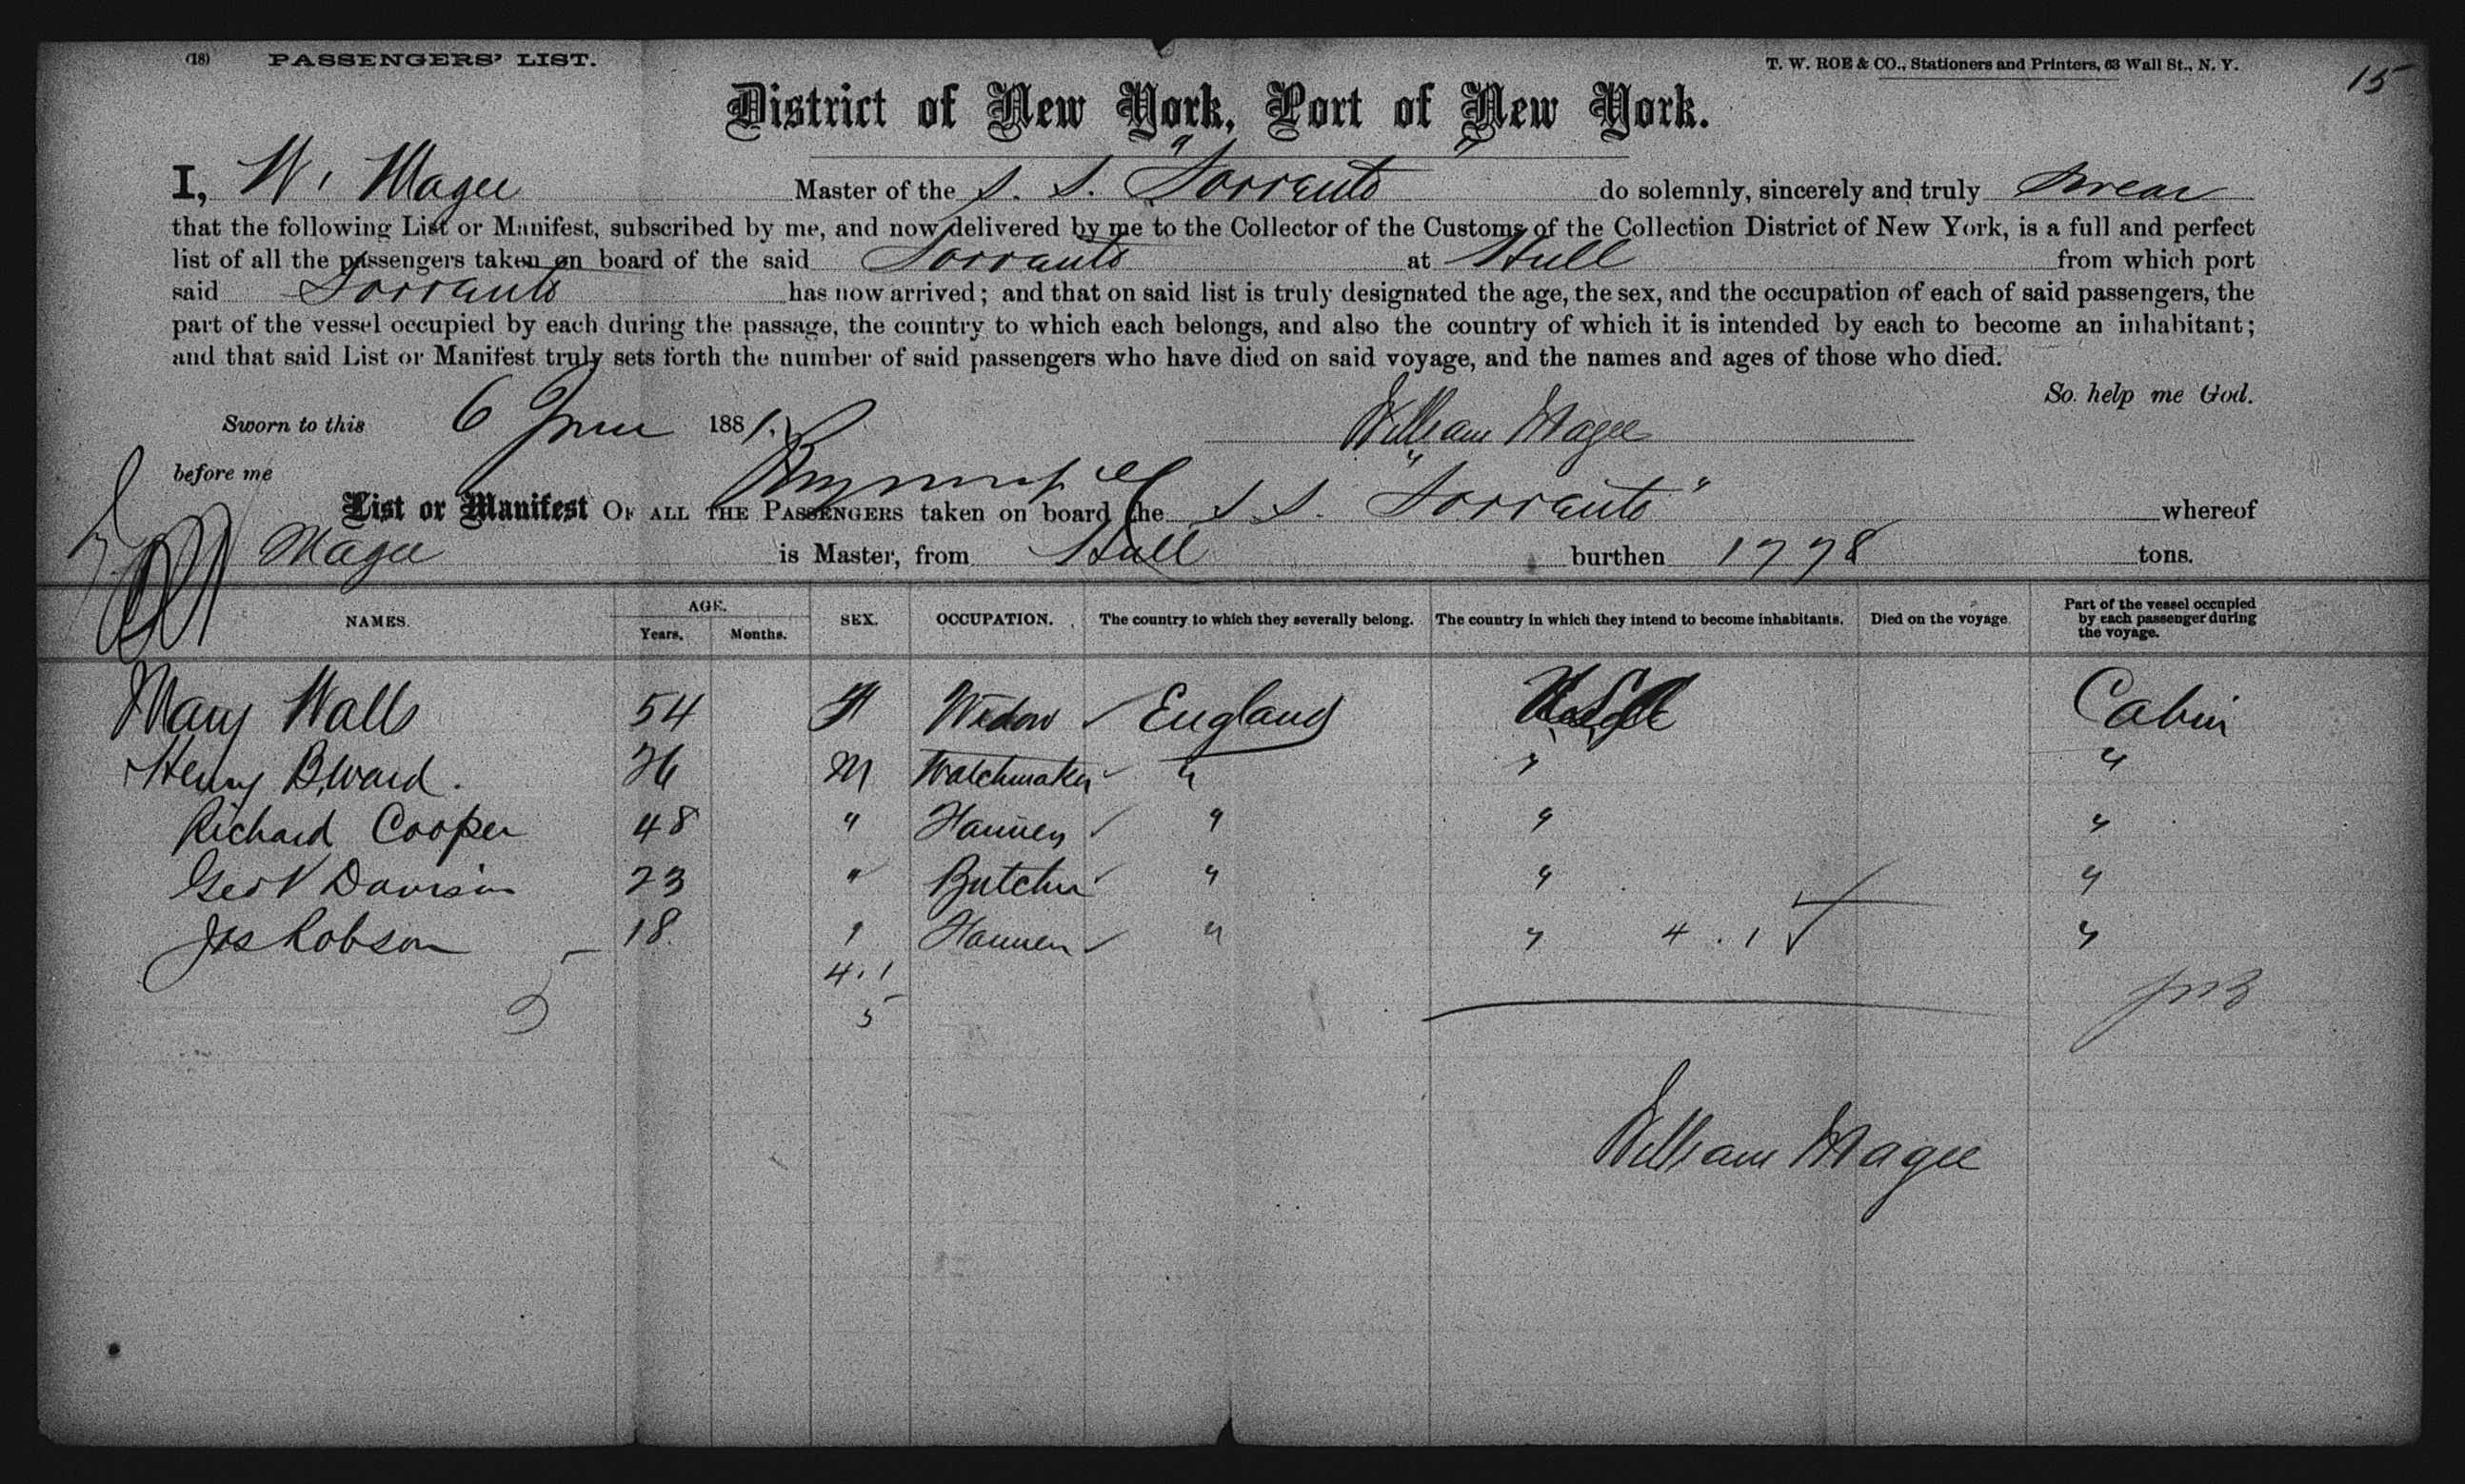 (18) PASSENGERS' LIST. T. W. ROE & CO., Stationers and Printers, 63 Wall St., N. Y. 15
District of New York, Port of New York.
I, W. Magee Master of the S. S. "Sorrento" do solemnly, sincerely and truly swear
that the following List or Manifest, subscribed by me, and now delivered by me to the Collector of the Customs of the Collection District of New York, is a full and perfect
list of all the passengers taken on board of the said Sorrento at Hull from which port
said Sorrento has now arrived; and that on said list is truly designated the age, the sex, and the occupation of each of said passengers, the
part of the vessel occupied by each during the passage, the country to which each belongs, and also the country of which it is intended by each to become an inhabitant;
and that said List or Manifest truly sets forth the number of said passengers who have died on said voyage, and the names and ages of those who died.
So help me God.
Sworn to this 6 June 1881. William Magee
before me
List or Manifest OF ALL THE PASSENGERS taken on board the S S. "Sorrento" whereof
Magee is Master, from Hull burthen 1778 tons.
NAMES. AGE. Years. Months. SEX. OCCUPATION. The country to which they severally belong. The country in which they intend to become inhabitants. Died on the voyage. Part of the vessel occupied by each passenger during the voyage.
Mary Walls 54 Widow England Cabin
Henry B. Ward. 26 M Watchmaker " " "
Richard Cooper 48 " " " "
Geo V Davison 23 " Butcher " " "
Jos Robson 18. " " " 4 . 1 "
4. 1
5 5
William Magee